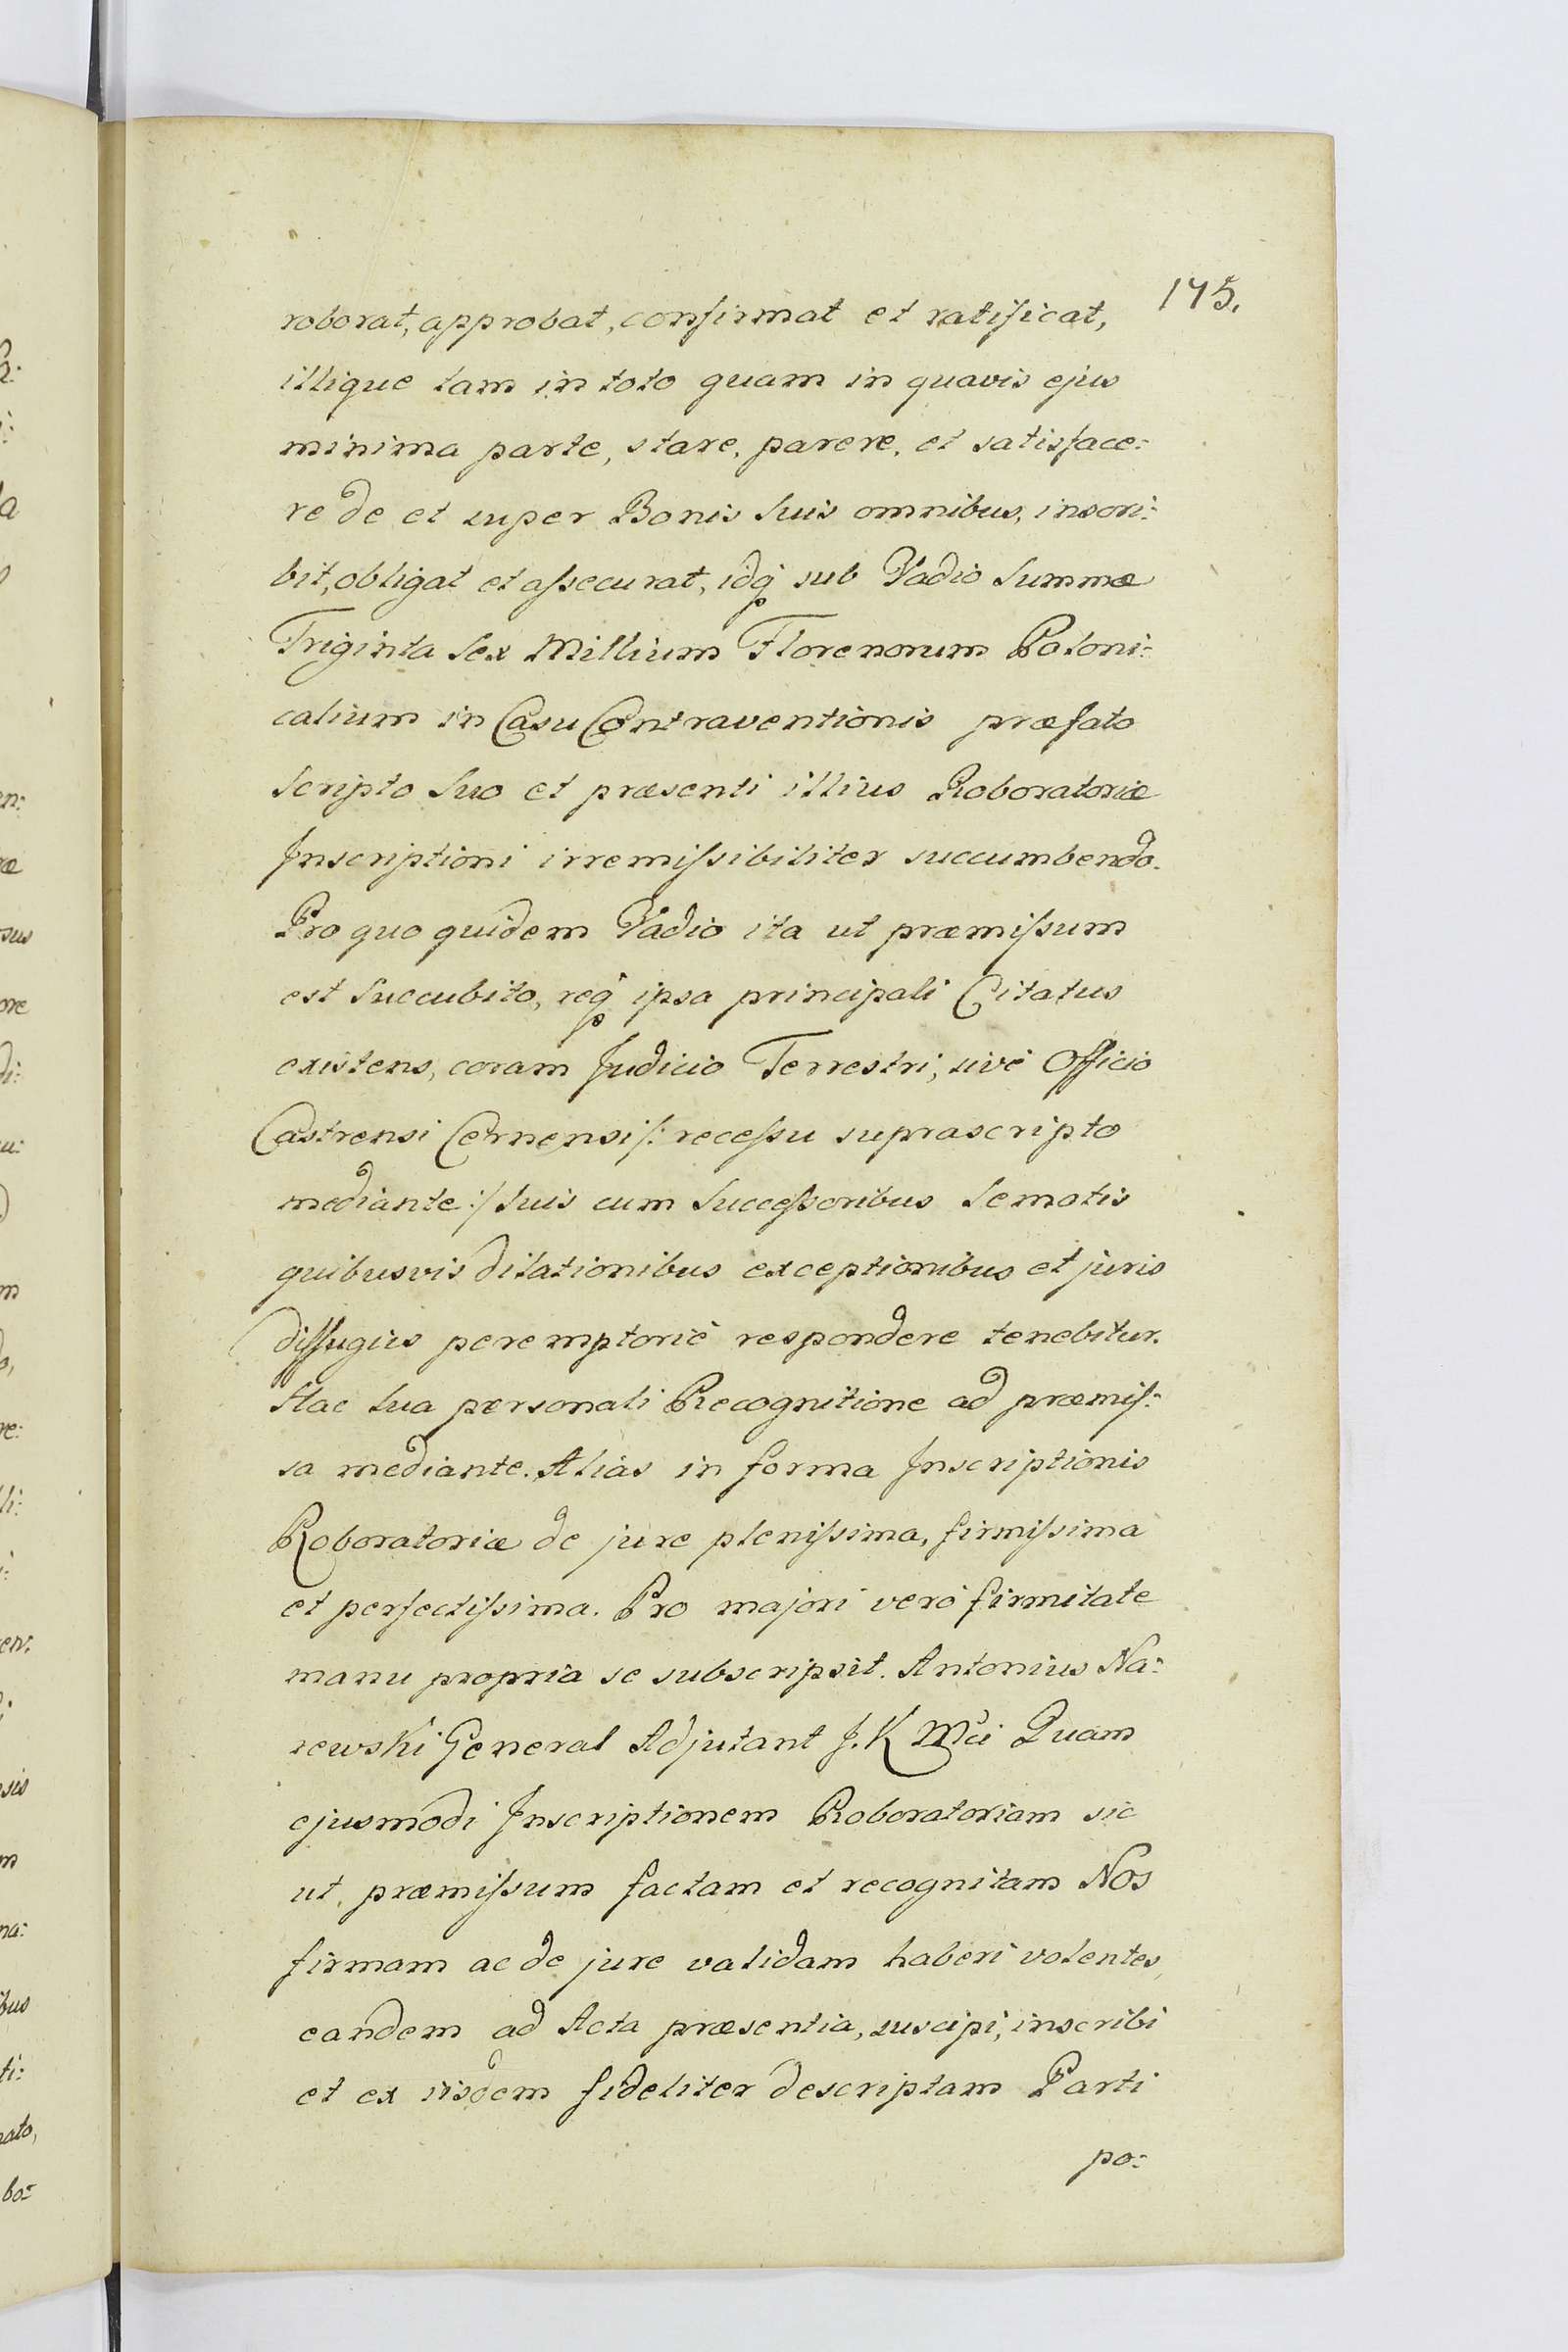 175.
roborat, approbat, confirmat et ratificat,
illique tam in toto quam in quavis ejus
minima parte, stare, parere, et satisface:
re de et super Bonis Suis omnibus, inscri:
bit, obligat et aſsecurat, idq sub Vadio Summæ
Triginta Sex Millium Florenorum Poloni:
calium in Casu Contraventionis præfato
Scripto Suo et præsenti illius Roboratoriæ
Inscriptioni irremiſsibiliter succumbendo.
Pro quo quidem Vadio ita ut præmiſsum
est Succubito, req ipsa principali Citatus
existens, coram Judicio Terrestri, sivè Officio
Castrensi Cernensi /: receſsu suprascripto
mediante :/ Suis cum Succeſsoribus Semotis
quibusvis dilationibus exceptionibus et juris
diffugiis peremptoriè respondere tenebitur.
Hac Sua personali Recognitione ad præmiſ:
sa mediante. Alias in forma Inscriptionis
Roboratoriæ de jure pleniſsima, firmiſsima
et perfectiſsima. Pro majori verò firmitate
manu propria se subscripsit. Antonius Na:
rewski General Adjutant J. K Mci Quam
ejusmodi Inscriptionem Roboratoriam sic
ut præmiſsum factam et recognitam Nos
firmam ac de jure validam haberi volentes,
eandem ad Acta præsentia, suscipi, inscribi
et ex iisdem fideliter descriptam Parti
po: